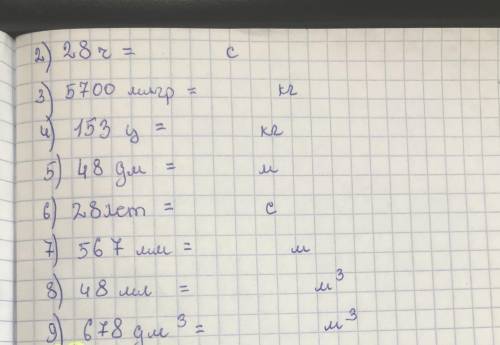 2) 28 ч = с
3) 5700 мигр = кг
4) 153 ц = кг
5) 48 дм = м
6) 28 лет = с
7) 567 мм = м
8) 48 мл = м³
9) 678 дм³ = м³